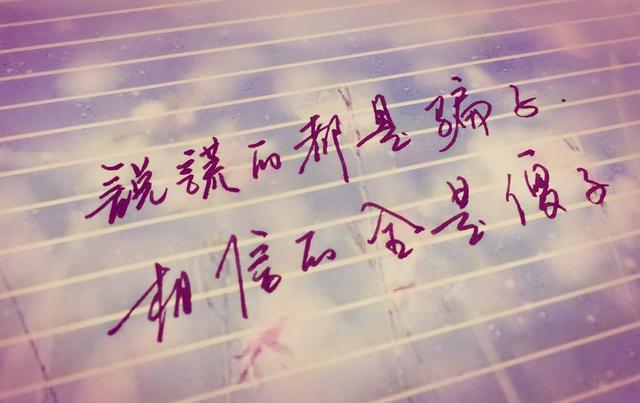 說謊的都是騙子.
相信的全是傻子